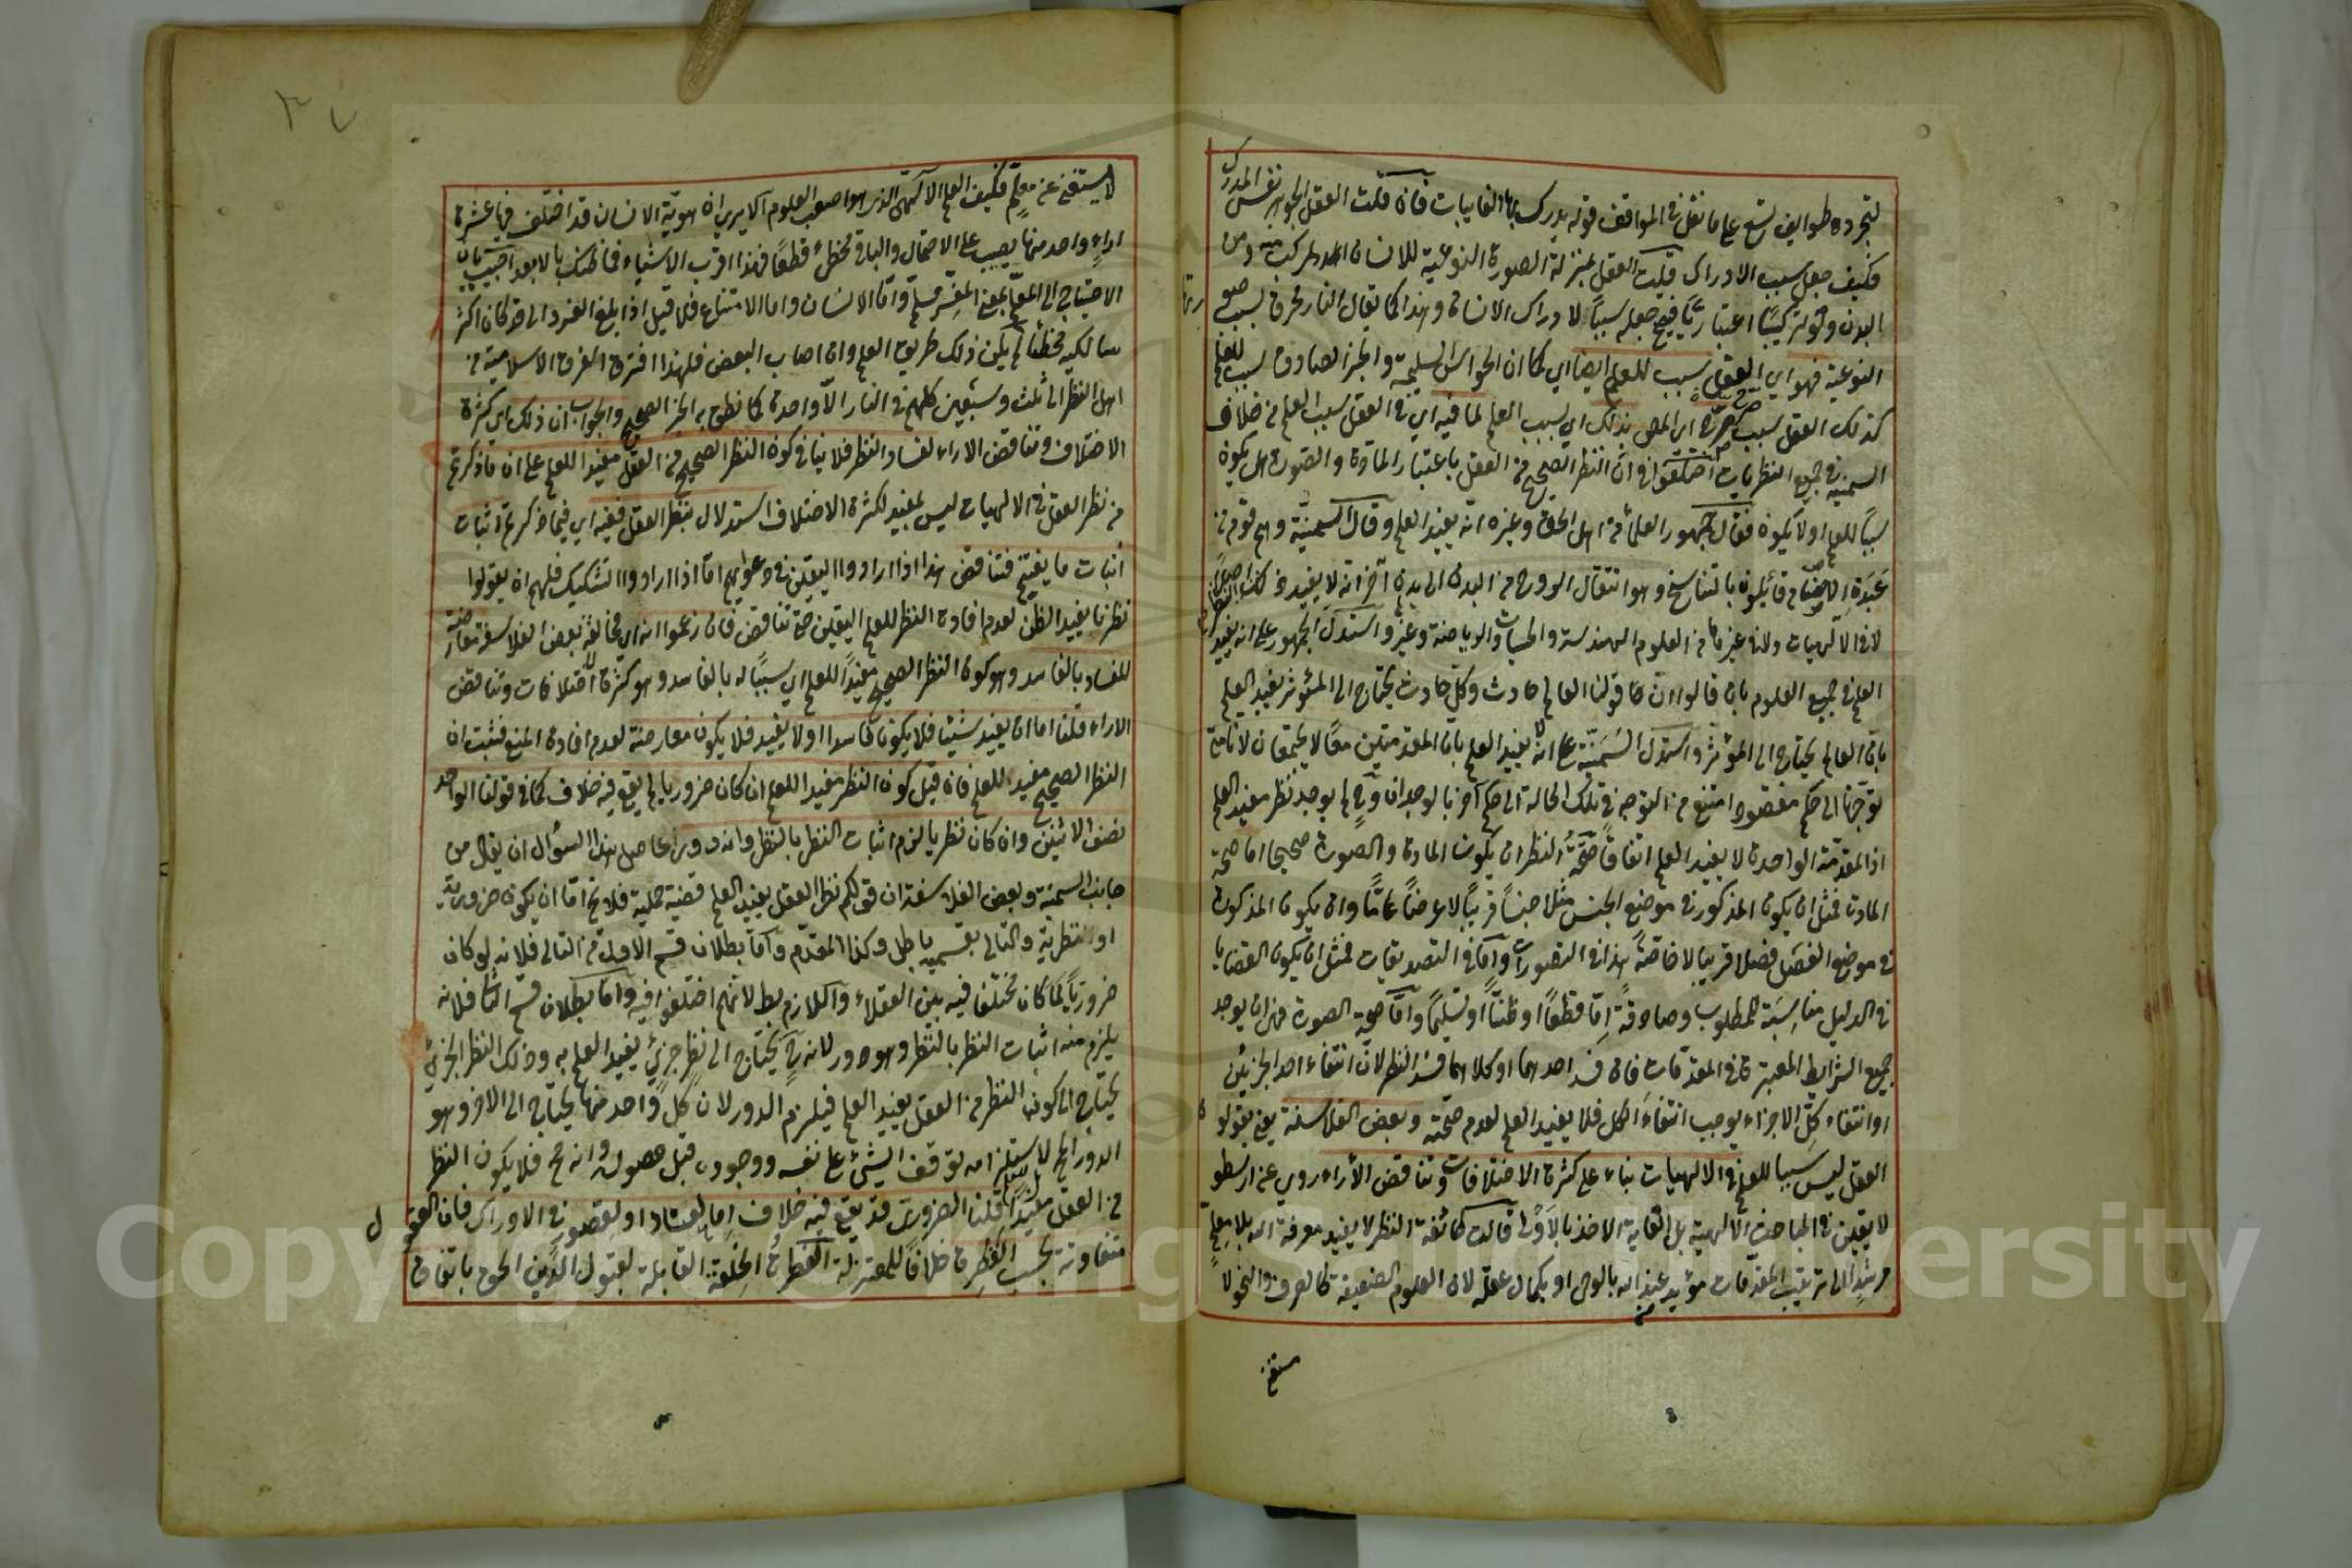 لتجرده طوايف تسع على ما نقل في المواقف قوله يدرك بها الغايبات فان قلت العقل الجوهر نفس المدرك
فكيف جعل سبب الادراك قيلت العقل بمنزلة الصورة النوعية للانسان المركب منه ومن
البدن وقوله اعتباريا فيصح جعله سببا لادراك الانسان وهذا كما يقال النار محرق بسبب صو
رتها
النوعية فهو اي العقل سبب للعلم ايضا اي كما ان الحواس السليمة والخبر الصادق سبب للعلم
كذلك العقل سبب صرح اي المص بذلك اي بسبب العلم لما فيه اي في العقل سبب العلم من خلاف
السمنية في جميع النظريات اختلفوا في ان النظر الصحيح من العقل باعتبار المادة والصورة هل يكون
سببا للعلم اولا يكون فقال جمهور العلماء من اهل الحق وغيره انه يفيد العلم وقال السمنية وهم قوم من
عبدة الاصنام قائلون بالتناسخ وهو انتقال الروح من البدن الى بدن آخر انه لا يفيد
لا في الالهيات ولا في غيرها من العلوم الهندسة والحسيات والرياضية وغير واستدل الجمهور على انه يفيد
العلم في جميع العلوم بان قالوا ان قولنا العالم حادث وكل حادث يحتاج الى المؤثر يفيد العلم
بان العالم يحتاج الى المؤثر واستدل السمنية على انه لا يفيد العلم بان المقدمتين معا لا يجتمعان لانا متى
توجهنا الى حكم مقصود امتنع من التوجه في تلك الحالة الى حكم آخر بالوجدان وح لم يوجد نظر مفيد العلم
اذ المقدمة الواحدة لا يفيد العلم اتفاقا صحة النظر ان يكون المادة والصورة صحيحا اما صحة
المادة فمثل ان يكون المذكور في موضع الجنس مثلا جنسا قريبا لا عرضا عاما وان يكون المذكور
في موضع الفصل فصلا قريبا لا خاصة هذا في التصورات واما في التصديقات فمثل ان يكون القضايا
في الدليل مناسبة للمطلوب وصادقة اما قطعا او ظنا او تسليما واما صحة الصورة فهو ان يوجد
جميع الشرايط المعتبرة في المقدمات فان فسد احدهما او كلاهما فسد النظر لان انتفاء احد الجزئين
او انتفاء كل الاجزاء يوجب انتفاء الكل فلا يفيد العلم لعدم صحته وبعض الفلاسفة يعني يقولو
ن
العقل ليس سببا للعلم في الالهيات بناء على كثرة الاختلافات وتناقض الآراء روي عن ارسطو
لا يقين في المباحث الالهية بل الغاية الاخذ بالاولى قالت طائفة النظر لا يفيد معرفة الله بلا معلم
مرشد الى ترتيب المقدمات مؤيد من عند الله بالوحي او بكمال عقله لان العلوم الضعيفة كالصرف والنحو لا
يستغني
لا يستغني عن معلم فكيف العلم الالهي الذي هو اصعب العلوم الا يرى ان هوية الانسان قد اختلف فيها عشرة
اراء واحد منها يصيب على الاحتمال والباقي مخطئ قطعا فهذا اقرب الاشياء فما ظنك بالابعد اجيب بان
الاحتياج الى المعلم بمعنى المفسر مسلم واما الانسان واما الامتناع فلا قيل اذا بلغ الفرد الى حد كان اكثر
سالكيه مخطئا لم يكن ذلك طريق العلم وان اصاب البعض فلهذا افترق الفرق الاسلامية من
اهل النظر الى ثلث وسبعين كلهم في النار الا واحدة كما نطق به الخبر الصحيح والجواب ان ذلك اي كثرة
الاختلاف وتناقض الاراء لفساد النظر فلا ينافي كون النظر الصحيح من العقل مفيدا للعلم على ان ما ذكرتم
من نظر العقل في الالهيات ليس بمفيد لكثرة الاختلاف استدلال بنظر العقل ففيه اي فيما ذكرتم اثبات
اثبات ما نفيتم فتناقض هذا اذا ارادوا اليقين في دعواهم اما اذا ارادوا التشكيك فلهم ان يقولوا
نظرنا يفيد الظن لعدم افادة النظر للعلم اليقين حتى تناقض فان زعموا انه اي مخالفة بعض الفلاسفة معارضة
للفساد بالفاسد وهو كون النظر الصحيح مفيدا للعلم اي سببا له بالفاسد وهو كثرة الاختلافات وتناقض
الاراء قلنا اما ان يفيد شيئا فلا يكون فاسدا او لا يفيد فلا يكون معارضة لعدم افادة المنع فثبت ان
النظر الصحيح مفيد للعلم فان قيل كون النظر مفيدا للعلم ان كان ضروريا لم يقع فيه خلاف كما في قولنا الواحد
نصف الاثنين وان كان نظريا لزم اثبات النظر بالنظر وانه دور حاصل هذا السؤال ان يقال من
جانب السمنية وبعض الفلاسفة ان قولكم نظر العقل يفيد العلم قضية حملية فلا يخ اما ان يكون ضرورية
او نظرية والتالي بقسميه باطل وكذا المقدم واما بطلان قسم الاول من التالي فلانه لو كان
ضروريا لما كان مختلفا فيه بين العقلاء واللازم بط لانهم اختلفوا فيه واما بطلان قسم الثاني فلانه
يلزم منه اثبات النظر بالنظر وهو دور لانه ح يحتاج الى نظر جزئي يفيد العلم به وذلك النظر الجزئي
يحتاج الى كون النظر من العقل يفيد العلم فيلزم الدور لان كل واحد منهما يحتاج الى الاخر وهو
الدور المح لاستلزامه توقف الشيء على نفسه ووجوده قبل حصوله وانه مح فلا يكون النظر
من العقل مفيدا للعلم قلنا الضروري قد يقع فيه خلاف اما لعناد او لقصور في الادراك فان العقو
ل
متفاوتة بحسب الفطرة خلافا للمعتزلة الفطرة الخلقة القابلة لقبول الدين الحق باتفاق